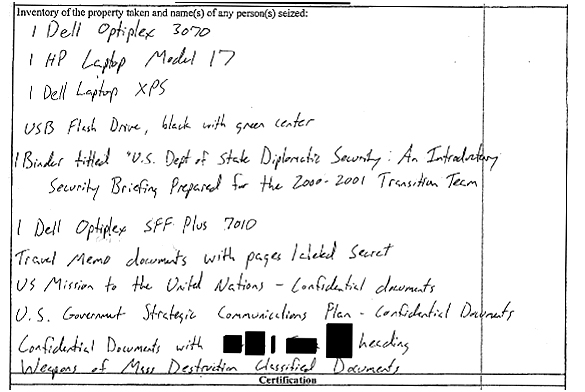 Inventory of the property taken and name(s) of any person(s) seized:
1 Dell Optiplex 3070
1 HP Laptop Model 17
1 Dell Laptop XPS
USB Flash Drive, black with green center
1 Binder titled "U.S. Dept of State Diplomatic Security: An Introductory
Security Briefing Prepared for the 2000-2001 Transition Team
1 Dell Optiplex SFF Plus 7010
Travel Memo documents with pages labeled Secret
US Mission to the United Nations - Confidential documents
U.S. Government Strategic Communications Plan - Confidential Documents
Confidential Documents with heading
Weapons of Mass Destruction Classified Documents
Certification